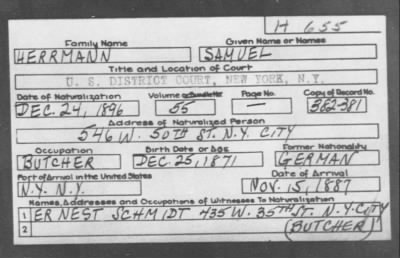 H 655
Family Name Given Name or Names
HERRMANN SAMUEL
Title and Location of Court
U. S. DISTRICT COURT, NEW YORK, N.Y.
Date of Naturalization Volume or Bundle No. Page No. Copy of Record No.
DEC. 24, 1896 55 — 382-381
Address of Naturalized Person
546 W. 50TH ST. N.Y. CITY
Occupation Birth Date or Age Former Nationality
BUTCHER DEC. 25, 1871 GERMAN
Port of Arrival in the United States Date of Arrival
N.Y. N.Y. NOV. 15, 1887
Names, Addresses and Occupations of Witnesses To Naturalization
1 ERNEST SCHMIDT 435 W. 35TH ST. N.Y. CITY
2 (BUTCHER)